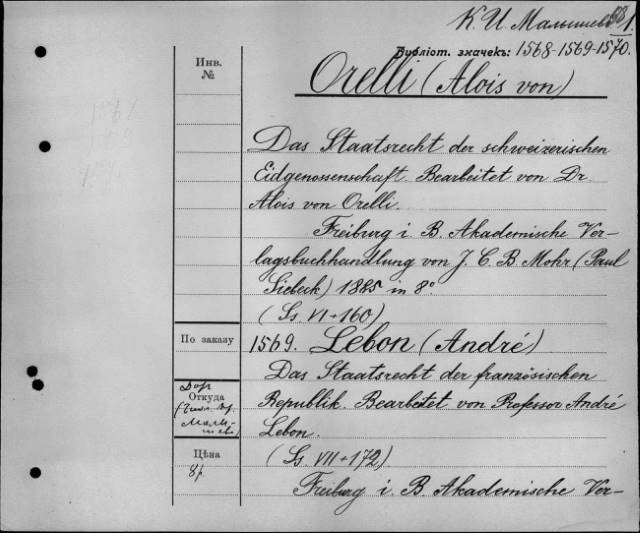 К. И. Малышев 1.
Библіот. значекъ: 1568-1569-1570.
Инв.
№
Orelli (Alois von)
Das Staatsrecht der schweizerischen
Eidgenossenschaft. Bearbeitet von Dr.
Alois von Orelli.
Freiburg i. B. Akademische Ver-
lagsbuchhandlung von J. C. B. Mohr (Paul
Siebeck) 1885 in 8°
(Ss. VI+160)
По заказу
1569. Lebon (André)
Das Staatsrecht der französischen
Откуда
Republik. Bearbeitet von Professor André
Lebon.
Цѣна
8р.
(Ss. VII+172)
Freiburg i. B. Akademische Ver-